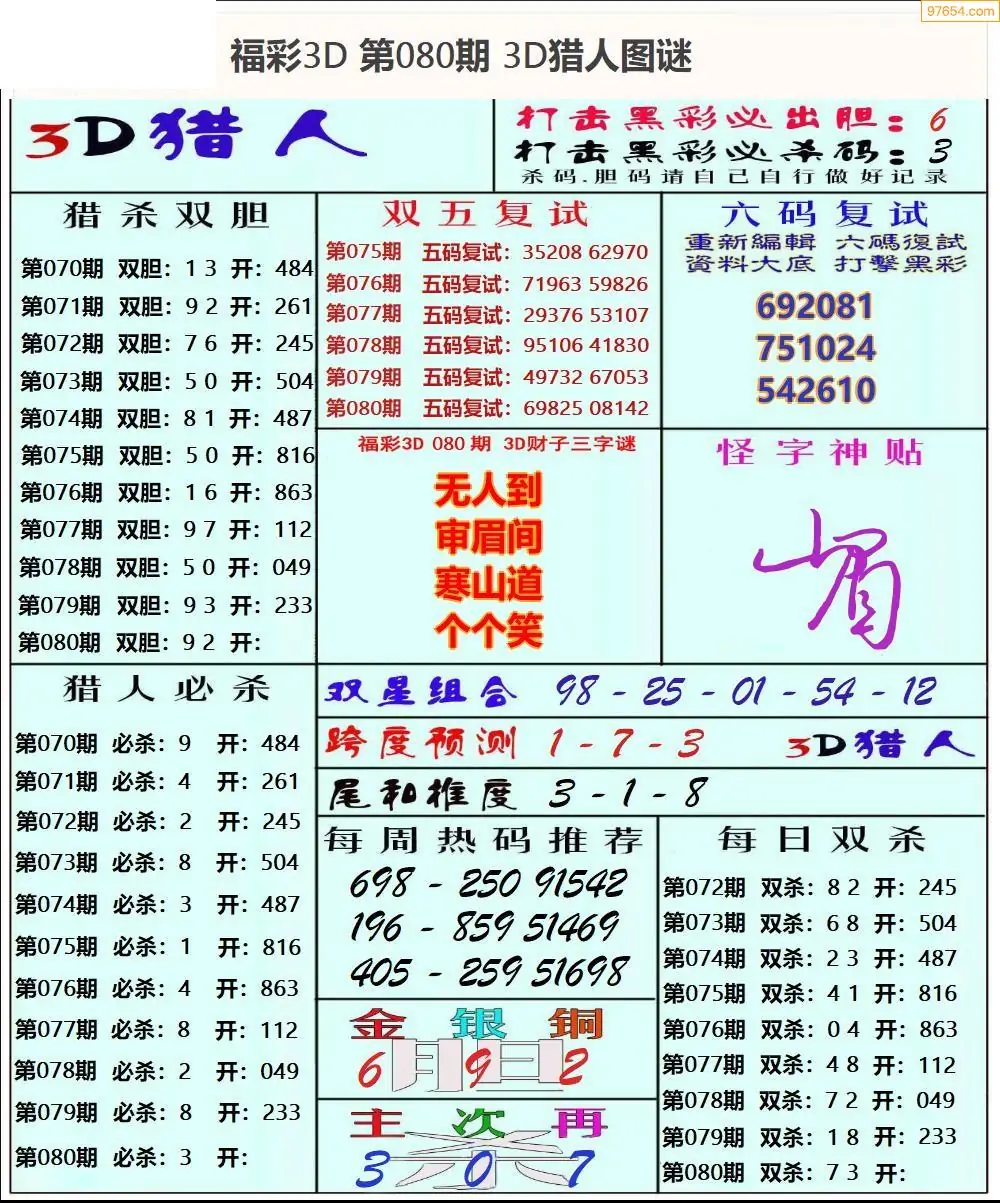 97654.com
福彩3D 第080期 3D猎人图谜
3D猎人
打击黑彩必出胆：6
打击黑彩必杀码：3
杀码.胆码请自己自行做好记录
猎杀双胆
第070期 双胆：1 3 开：484
第071期 双胆：9 2 开：261
第072期 双胆：7 6 开：245
第073期 双胆：5 0 开：504
第074期 双胆：8 1 开：487
第075期 双胆：5 0 开：816
第076期 双胆：1 6 开：863
第077期 双胆：9 7 开：112
第078期 双胆：5 0 开：049
第079期 双胆：9 3 开：233
第080期 双胆：9 2 开：
双五复试
第075期 五码复试：35208 62970
第076期 五码复试：71963 59826
第077期 五码复试：29376 53107
第078期 五码复试：95106 41830
第079期 五码复试：49732 67053
第080期 五码复试：69825 08142
六码复试
重新編輯 六碼復試
資料大底 打擊黑彩
692081
751024
542610
福彩3D 080 期 3D财子三字谜
无人到
审眉间
寒山道
个个笑
怪字神贴
猎人必杀
第070期 必杀：9 开：484
第071期 必杀：4 开：261
第072期 必杀：2 开：245
第073期 必杀：8 开：504
第074期 必杀：3 开：487
第075期 必杀：1 开：816
第076期 必杀：4 开：863
第077期 必杀：8 开：112
第078期 必杀：2 开：049
第079期 必杀：8 开：233
第080期 必杀：3 开：
双星组合 98 - 25 - 01 - 54 - 12
跨度预测 1 - 7 - 3 3D猎人
尾和推度 3 - 1 - 8
每周热码推荐
698 - 250 91542
196 - 859 51469
405 - 259 51698
金 银 铜
胆
6 9 2
主 次 再
杀
3 0 7
每日双杀
第072期 双杀：8 2 开：245
第073期 双杀：6 8 开：504
第074期 双杀：2 3 开：487
第075期 双杀：4 1 开：816
第076期 双杀：0 4 开：863
第077期 双杀：4 8 开：112
第078期 双杀：7 2 开：049
第079期 双杀：1 8 开：233
第080期 双杀：7 3 开：